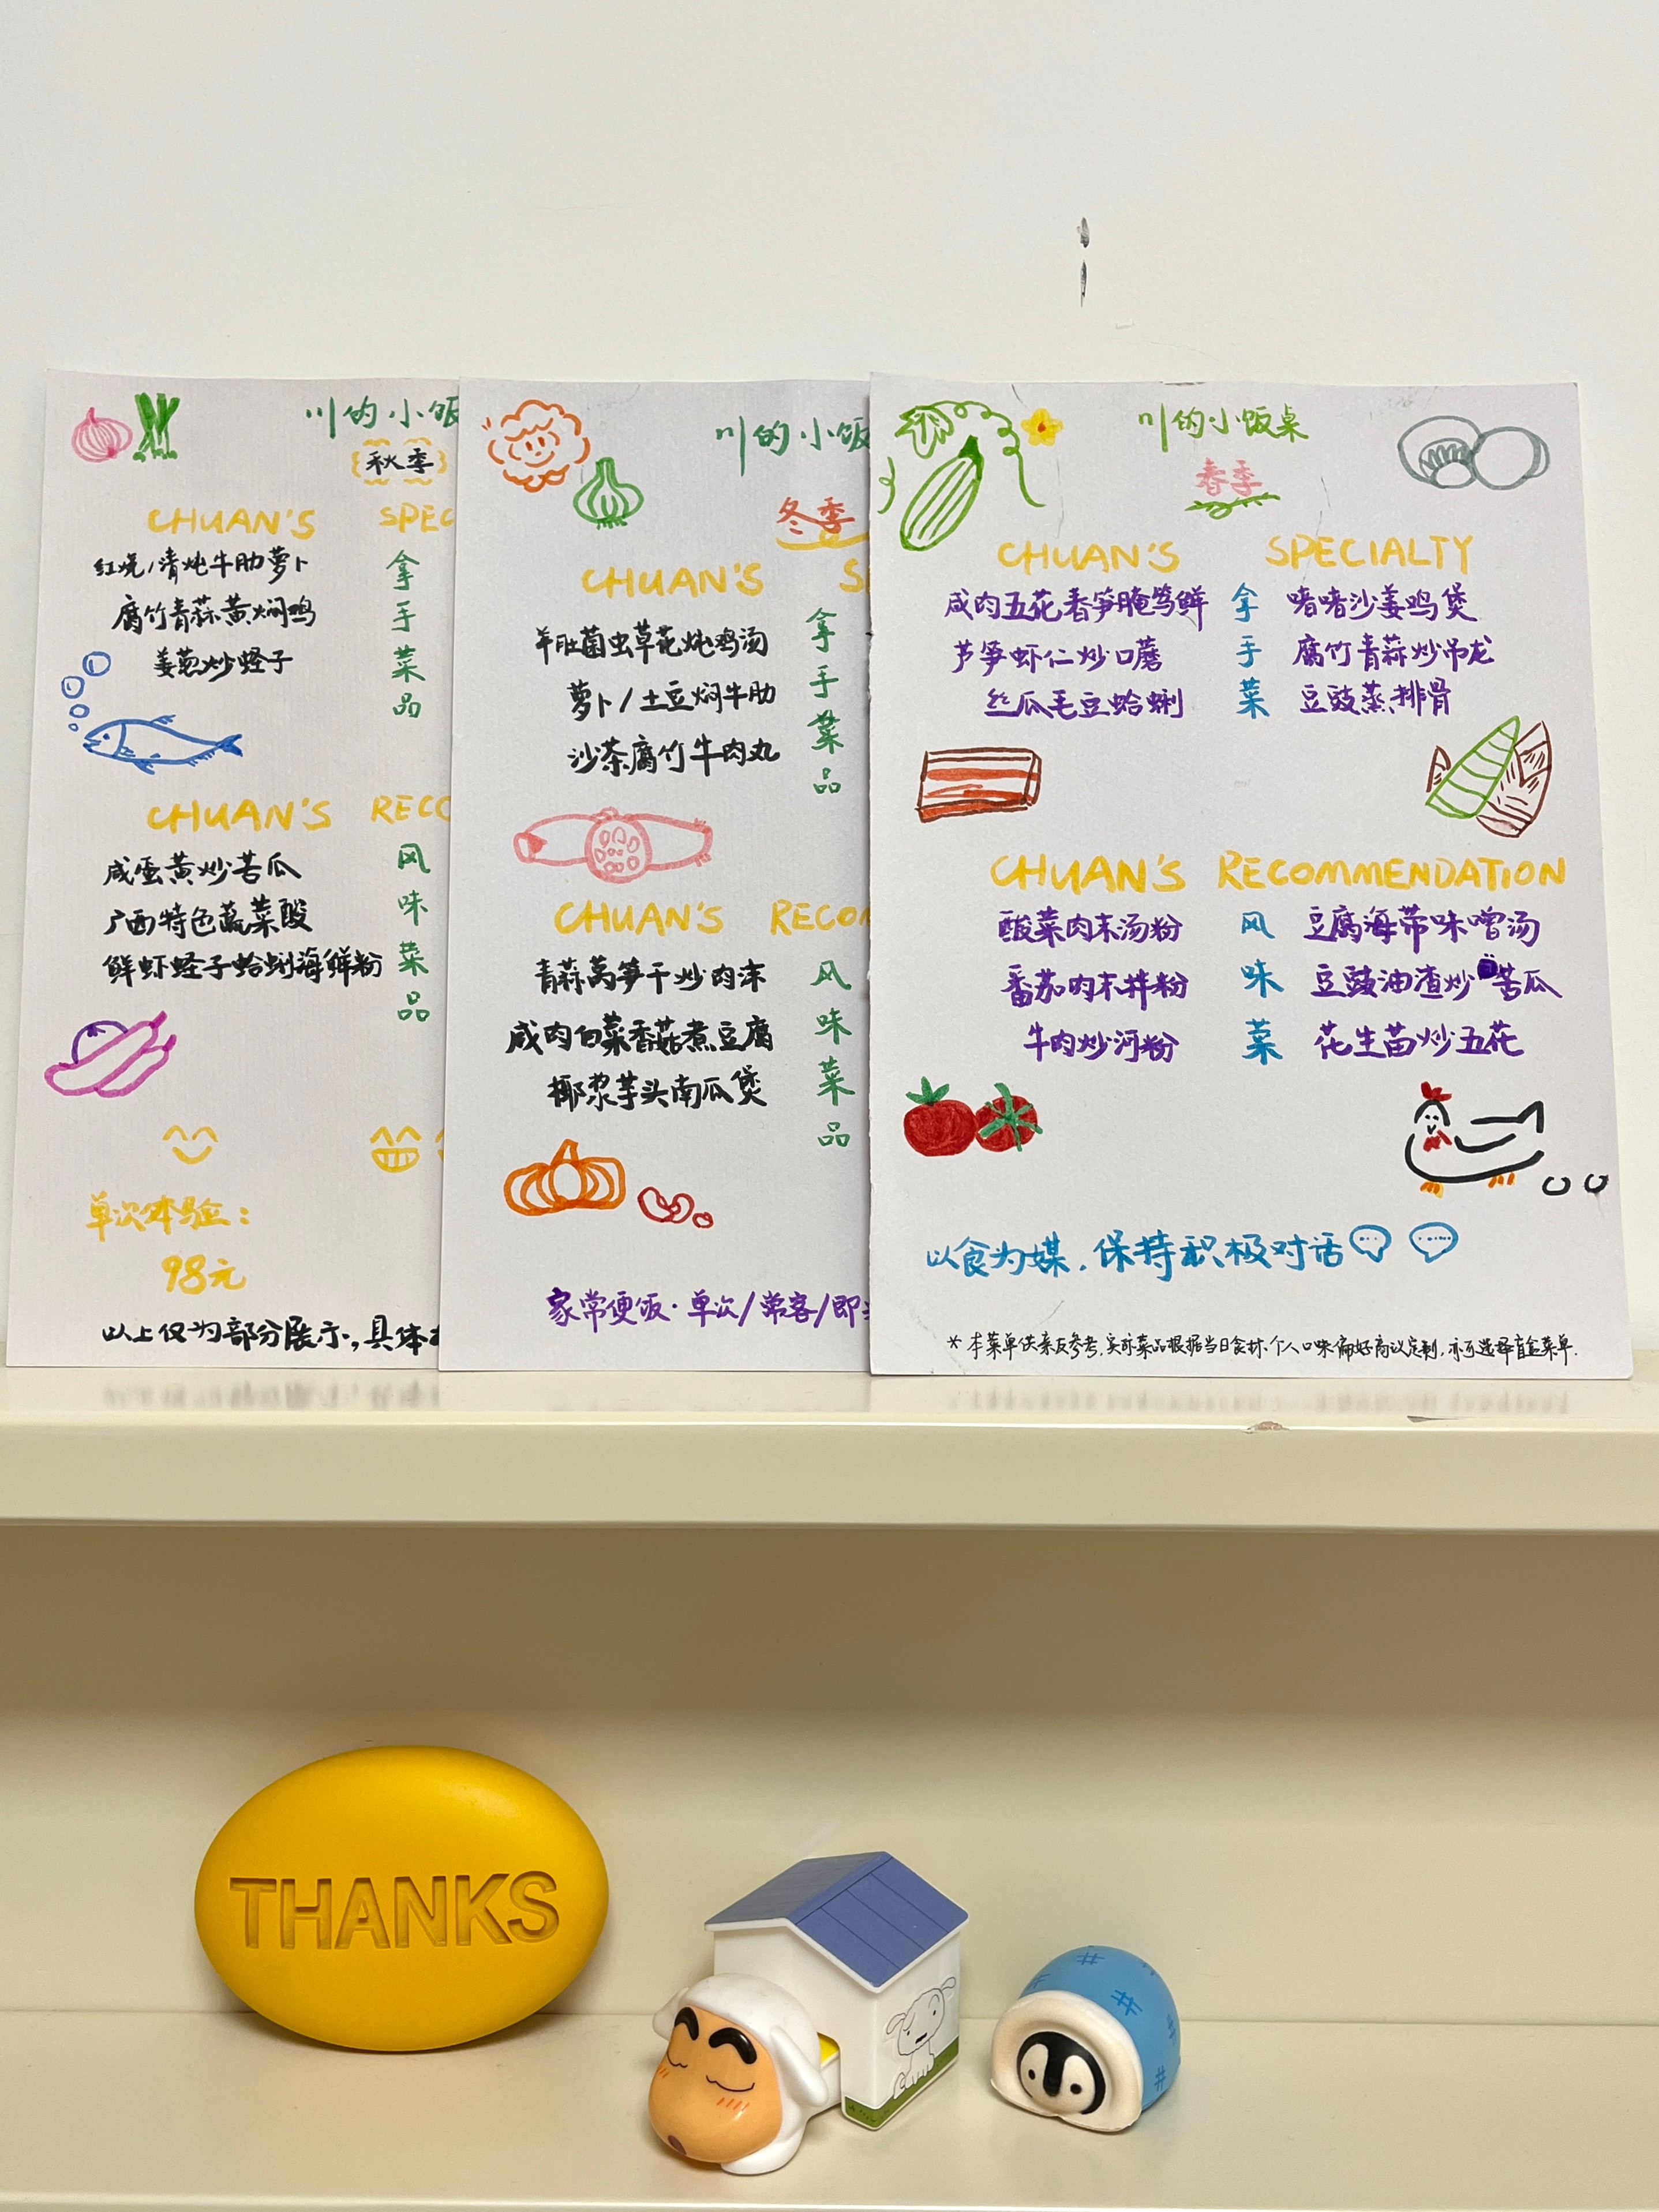 川的小饭
秋季
CHUAN'S SPEC
拿手菜品
红烧/清炖牛肋萝卜
腐竹青蒜黄焖鸡
姜葱炒蛏子
CHUAN'S RECO
风味菜品
咸蛋黄炒苦瓜
广西特色蔬菜酸
鲜虾蛏子蛤蜊海鲜粉
单次体验：
98元
以上仅为部分展示，具体
川的小饭
冬季
CHUAN'S S
拿手菜品
羊肚菌虫草花炖鸡汤
萝卜/土豆焖牛肋
沙茶腐竹牛肉丸
CHUAN'S RECO
风味菜品
青蒜莴笋干炒肉沫
咸肉白菜香菇煮豆腐
椰浆芋头南瓜煲
家常便饭·单次/常客/即
川的小饭桌
春季
CHUAN'S SPECIALTY
拿手菜
咸肉五花春笋腌笃鲜
芦笋虾仁炒口蘑
丝瓜毛豆蛤蜊
啫啫沙姜鸡煲
腐竹青蒜炒吊龙
豆豉蒸排骨
CHUAN'S RECOMMENDATION
风味菜
酸菜肉末汤粉
番茄肉末拌粉
牛肉炒河粉
豆腐海带味噌汤
豆豉油渣炒苦瓜
花生苗炒五花
以食为媒，保持积极对话
*本菜单供亲友参考，实际菜品根据当日食材、个人口味偏好商议定制，亦可选择盲盒菜单.
THANKS